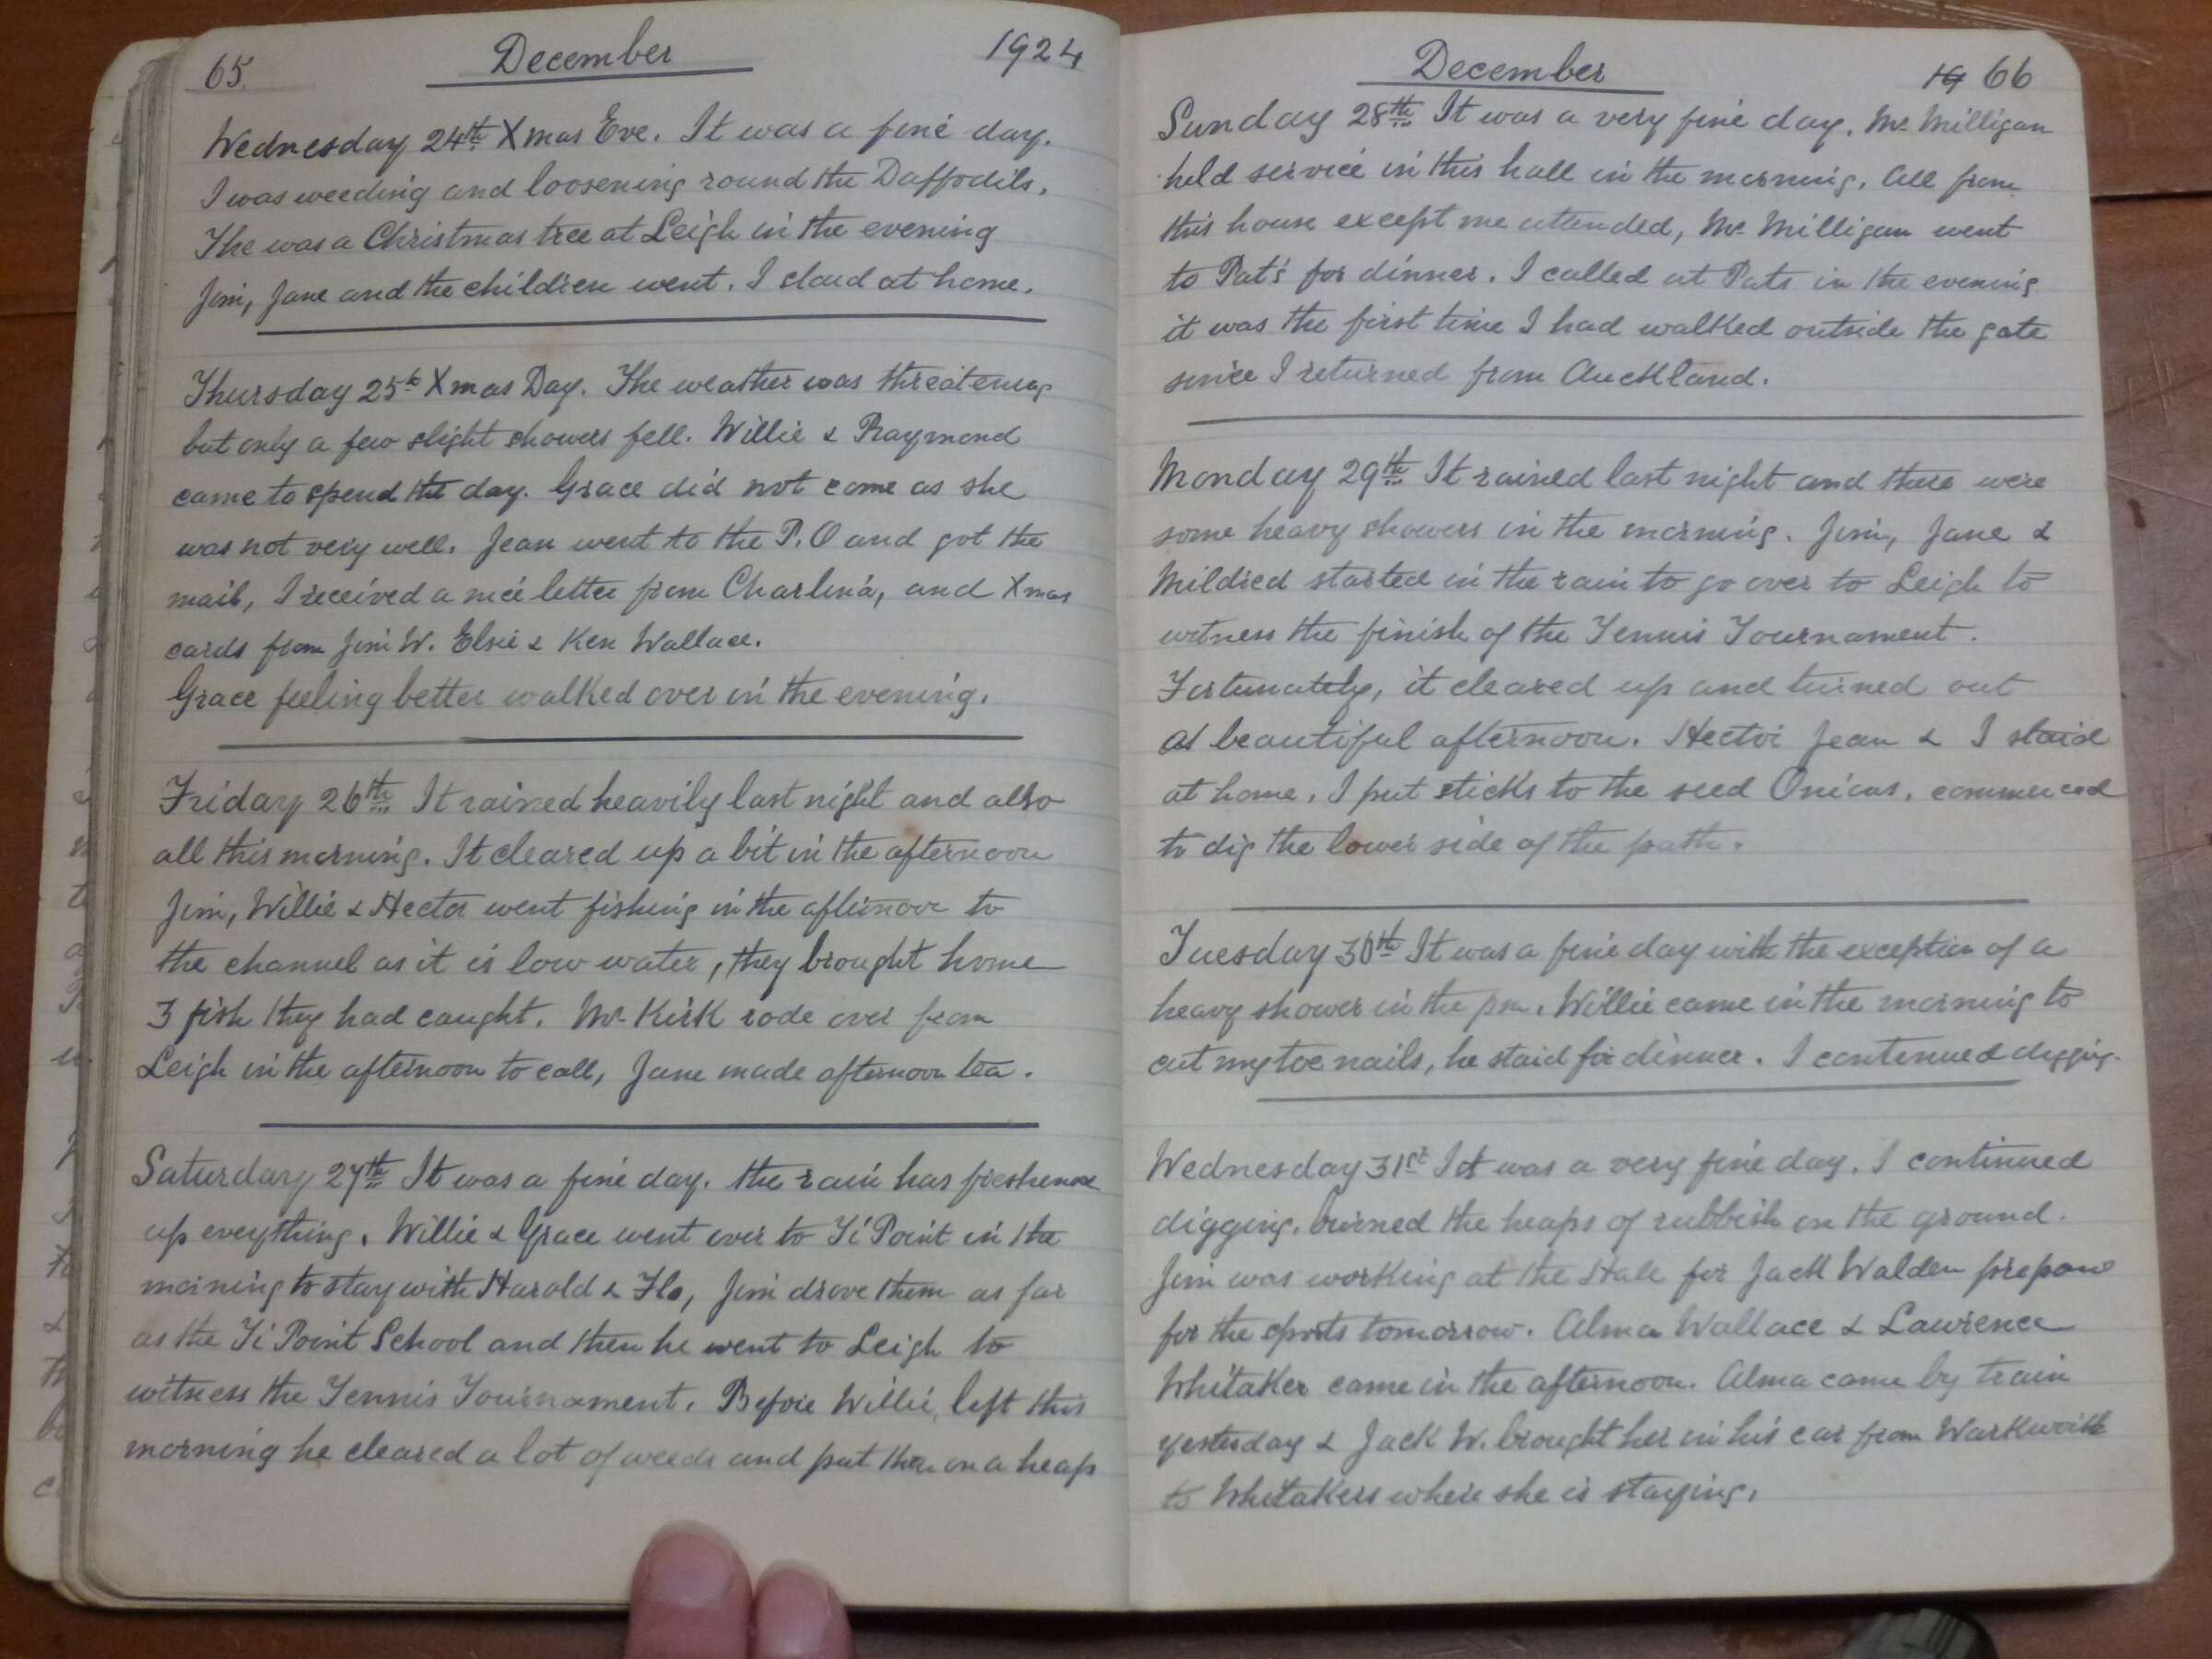 65 December 1924
Wednesday 24th Xmas Eve. It was a fine day.
I was weeding and loosening round the Daffodils.
The was a Christmas tree at Leigh in the evening
Jim, Jane and the children went. I staid at home.
Thursday 25th Xmas Day. The weather was threatening
but only a few slight showers fell. Willie & Raymond
came to spend the day. Grace did not come as she
was not very well. Jean went to the P.O and got the
mail, I received a nice letter from Charlena, and Xmas
cards from Jim W. Elsie & Ken Wallace.
Grace feeling better walked over in the evening.
Friday 26th It rained heavily last night and also
all this morning. It cleared up a bit in the afternoon
Jim, Willie & Hector went fishing in the afternoon to
the channel as it is low water, they brought home
3 fish they had caught. Mr Kirk rode over from
Leigh in the afternoon to call, Jane made afternoon tea.
Saturday 27th It was a fine day. the rain has freshened
up everything. Willie & Grace went over to Ti Point in the
morning to stay with Harold & Flo, Jim drove them as far
as the Ti Point School and then he went to Leigh to
witness the Tennis Tournament. Before Willie left this
morning he cleared a lot of weeds and put them on a heap
December 19 66
Sunday 28th It was a very fine day. Mr Milligan
held service in this hall in the morning. All from
this house except me attended, Mr Milligan went
to Pat's for dinner. I called at Pats in the evening
it was the first time I had walked outside the gate
since I returned from Auckland.
Monday 29th It rained last night and there were
some heavy showers in the morning. Jim, Jane &
Mildred started in the rain to go over to Leigh to
witness the finish of the Tennis Tournament.
Fortunately, it cleared up and turned out
a beautiful afternoon. Hector Jean & I staid
at home. I put sticks to the seed Onions, commenced
to dig the lower side of the path.
Tuesday 30th It was a fine day with the exception of a
heavy shower in the pm. Willie came in the morning to
cut my toe nails, he staid for dinner. I continued digging.
Wednesday 31st It was a very fine day. I continued
digging. burned the heaps of rubbish on the ground.
Jim was working at the Hall for Jack Walden prepare
for the sports tomorrow. Alma Wallace & Lawrence
Whitaker came in the afternoon. Alma came by train
yesterday & Jack W. brought her in his car from Warkworth
to Whitakers where she is staying.